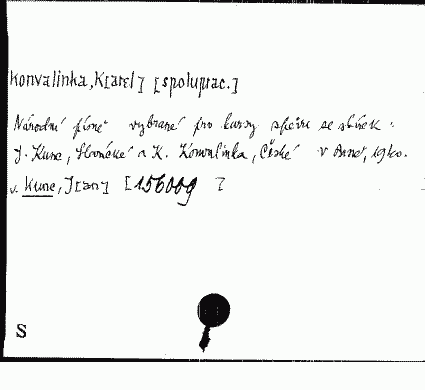 Konvalinka, K[arel] [spoluprac.]
Národní písně vybrané pro kursy zpěvu se sbírek:
J. Kunc, Slovácké a K. Konvalinka, České v Brně,
v. Kunc, J[an] [156009]
S